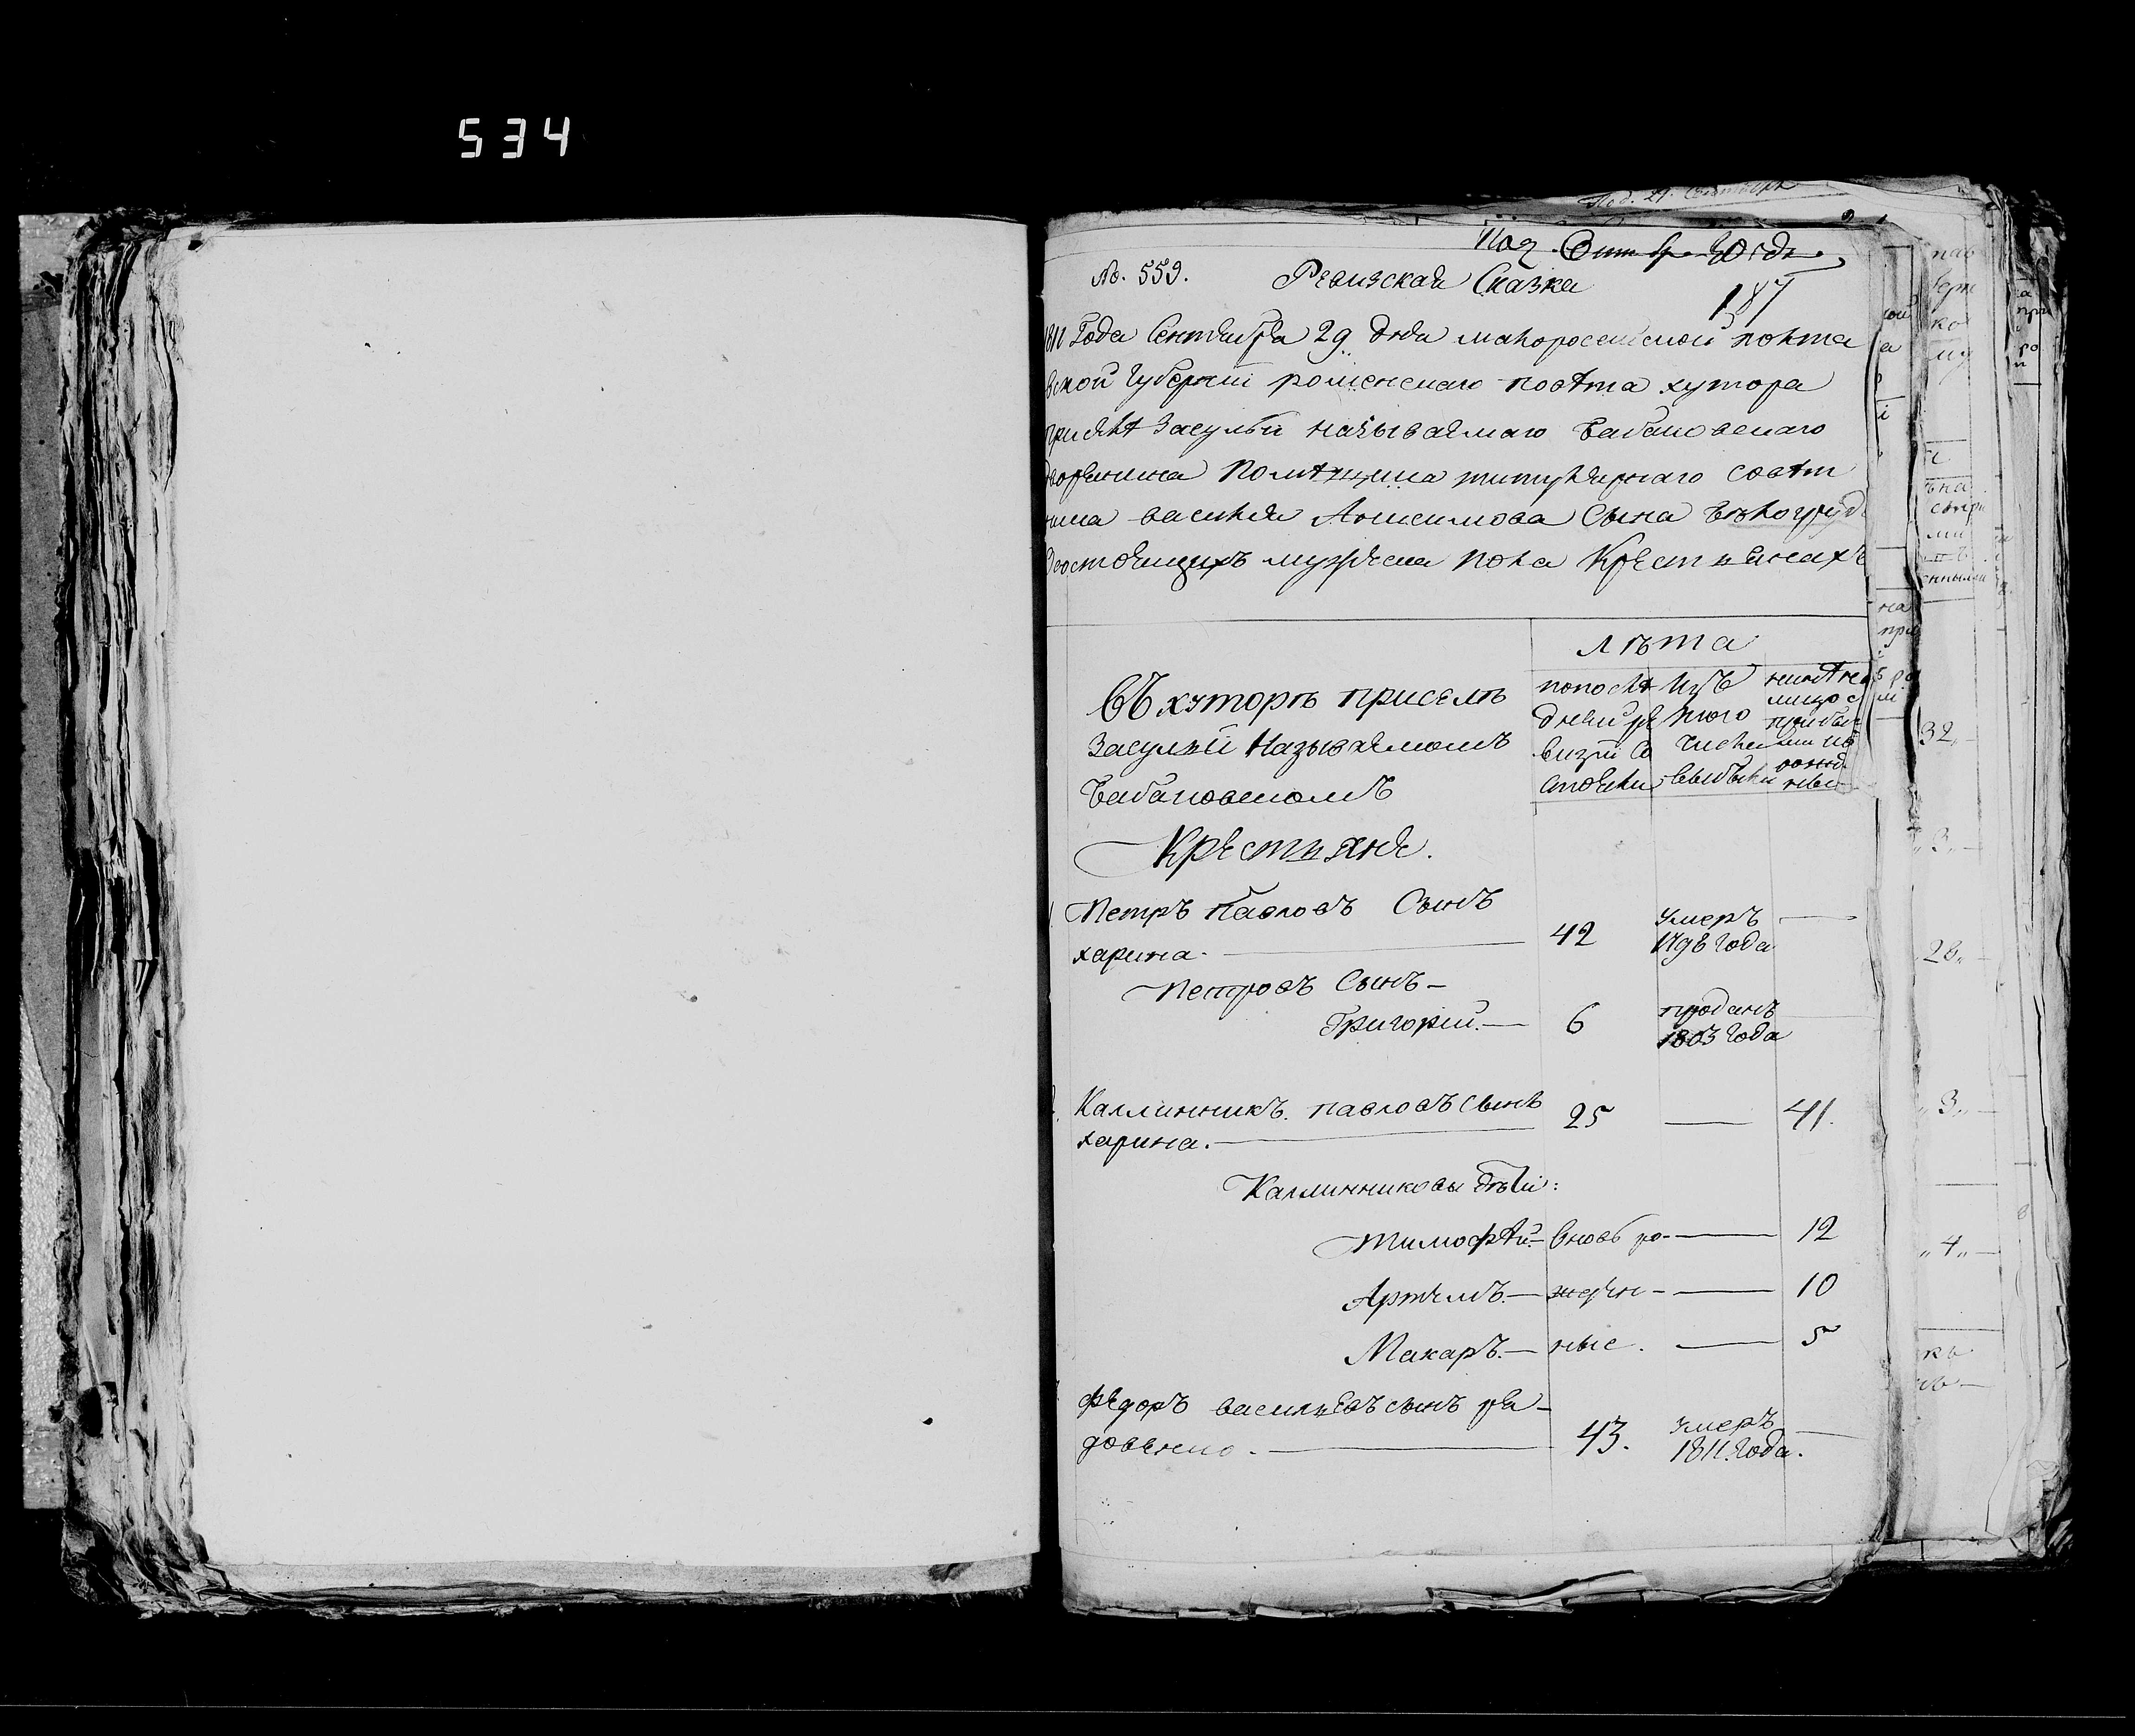 534
Под. 29. Сентября
Под. Сентяб. 30 Дня
No. 559. Ревизская Сказка
187
1811 Года Сентября 29 дня малоросейской полта
вской губернїи роменского повѣта хутора
при селѣ Засулїи називаемаго Бабаковскаго
дворянина Помѣщика титулярнаго совѣт
ника василия Анисимова Сына
состоящихъ мужеска пола Крестьянахъ
лѣта
Въ хуторѣ при селѣ
Засулїи Называемомъ
Бабаковскомъ
по послѣ
дней ре
визїи Со
стояли
Изъ
того
числа
выбыли
ныѣ на
лицо с
прибы
ми и
рожд.
ныи
Крестьяне.
Петръ Павловъ Сынъ
харина. 42 умеръ 1798 Года
Петровъ Сынъ
Григорїй. 6 проданъ 1803 Года
Каллинникъ павловъ Сынъ
харина. 25 — 41.
Каллинниковы дѣти:
Тимофѣй. — вновь ро- — 12
Артемъ. — жден- — 10
Макаръ. — ные. — 5
Федоръ васильевъ сынъ ря-
довенко. 43. умеръ 1811. Года.
32
3
28
3
4